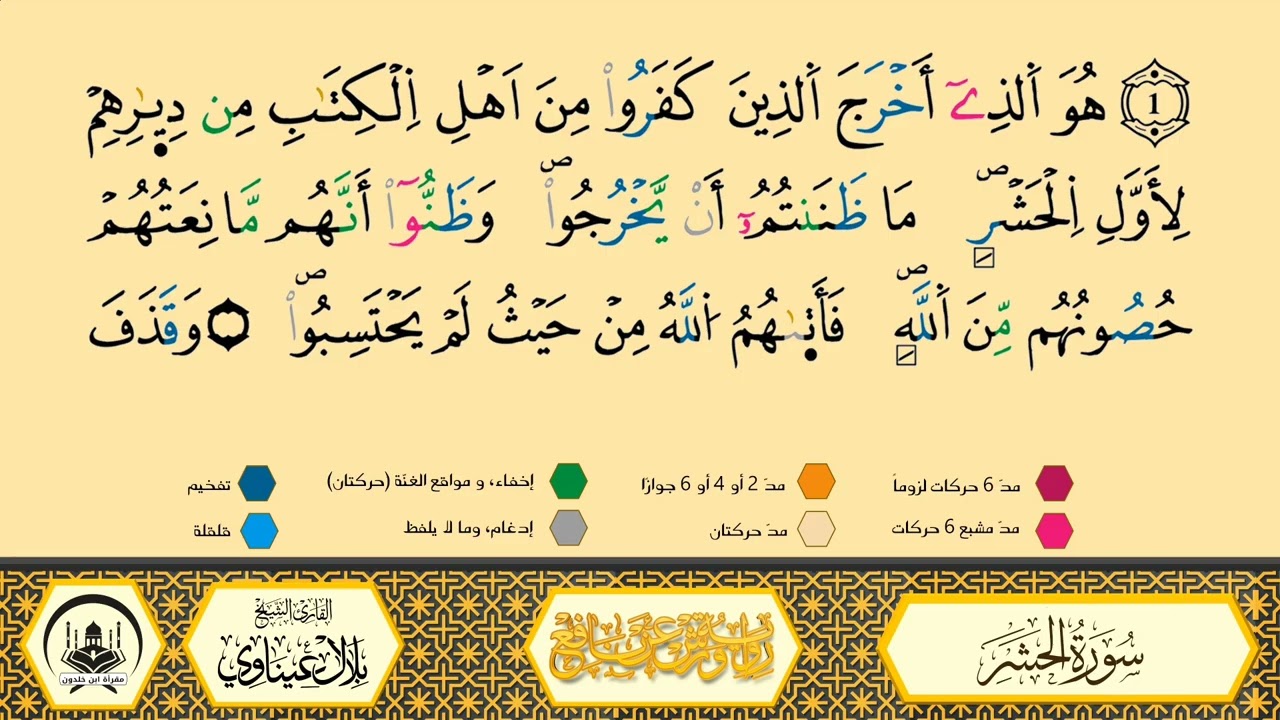 1 هُوَ اَ۬لذِےٓ أَخْرَجَ اَ۬لذِينَ كَفَرُواْ مِنَ اَهْلِ اِ۬لْكِتَٰبِ مِن دِيٰ۪رِهِمْ
لِأَوَّلِ اِ۬لْحَشْرِۖ مَا ظَنَنتُمُۥٓ أَنْ يَّخْرُجُواْۖ وَظَنُّوٓاْ أَنَّهُم مَّانِعَتُهُمْ
حُصُونُهُم مِّنَ اَ۬للَّهِۖ فَأَت۪ىٰهُمُ اُ۬للَّهُ مِنْ حَيْثُ لَمْ يَحْتَسِبُواْۖ وَقَذَفَ
مدّ 6 حركات لزوماً مدّ 2 أو 4 أو 6 جوازًا إخفاء، و مواقع الغنّة (حركتان) تفخيم
مدّ مشبع 6 حركات مدّ حركتان إدغام، وما لا يلفظ قلقلة
سُورَةُ الحَشْر
رواية ورش عن نافع
القارئ الشيخ
بلال عيناوي
مقرأة ابن خلدون